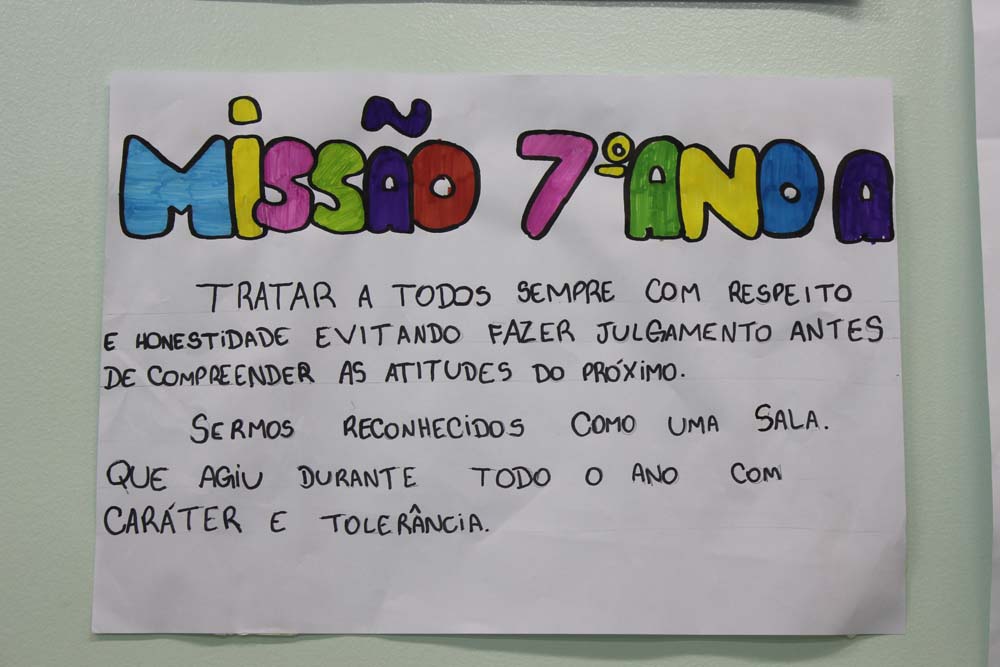 MISSÃO 7º ANO A
TRATAR A TODOS SEMPRE COM RESPEITO
E HONESTIDADE EVITANDO FAZER JULGAMENTO ANTES
DE COMPREENDER AS ATITUDES DO PRÓXIMO.
SERMOS RECONHECIDOS COMO UMA SALA.
QUE AGIU DURANTE TODO O ANO COM
CARÁTER E TOLERÂNCIA.